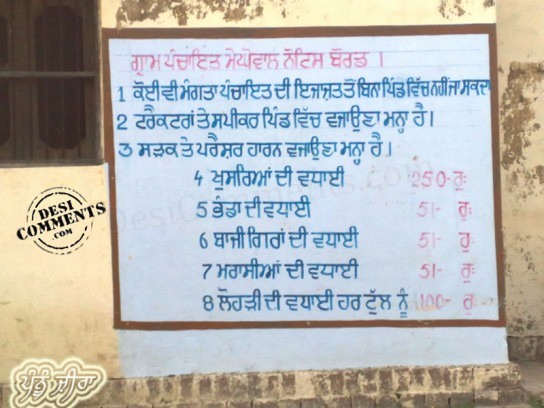 ਗ੍ਰਾਮ ਪੰਚਾਇਤ ਮੇਘੋਵਾਲ ਨੋਟਿਸ ਬੋਰਡ ।
1 ਕੋਈ ਵੀ ਮੰਗਤਾ ਪੰਚਾਇਤ ਦੀ ਇਜਾਜ਼ਤ ਤੋਂ ਬਿਨਾ ਪਿੰਡ ਵਿੱਚ ਨਹੀਂ ਜਾ ਸਕਦਾ
2 ਟਰੈਕਟਰਾਂ ਤੇ ਸਪੀਕਰ ਪਿੰਡ ਵਿੱਚ ਵਜਾਉਣਾ ਮਨ੍ਹਾ ਹੈ ।
3 ਸੜਕ ਤੇ ਪਰੈਸ਼ਰ ਹਾਰਨ ਵਜਾਉਣਾ ਮਨ੍ਹਾ ਹੈ ।
4 ਖੁਸਰਿਆਂ ਦੀ ਵਧਾਈ 250- ਰੁ:
5 ਭੰਡਾ ਦੀ ਵਧਾਈ 51- ਰੁ:
6 ਬਾਜੀਗਿਰਾਂ ਦੀ ਵਧਾਈ 51- ਰੁ:
7 ਮਰਾਸੀਆਂ ਦੀ ਵਧਾਈ 51- ਰੁ:
8 ਲੋਹੜੀ ਦੀ ਵਧਾਈ ਹਰ ਟੂੱਲ ਨੂੰ 100- ਰੁ:
DESI
COMMENTS
.COM
DesiComments.com